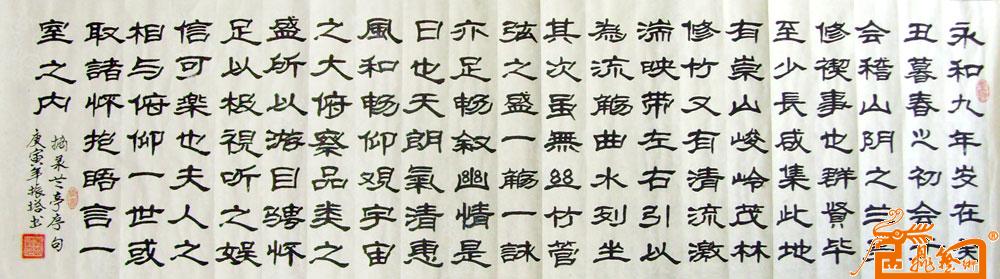 永和九年岁在癸
丑暮春之初会于
会稽山阴之兰亭
修禊事也群賢毕
至少長咸集此地
有崇山峻岭茂林
修竹又有清流激
湍映带左右引以
為流觴曲水列坐
其次虽無丝竹管
弦之盛一觴一詠
亦足畅叙幽情是
日也天朗氣清惠
風和畅仰观宇宙
之大俯察品类之
盛所以游目骋怀
足以极視听之娱
信可楽也夫人之
相与俯仰一世或
取諸怀抱晤言一
室之内
摘录兰亭序句
庚寅年振塔书